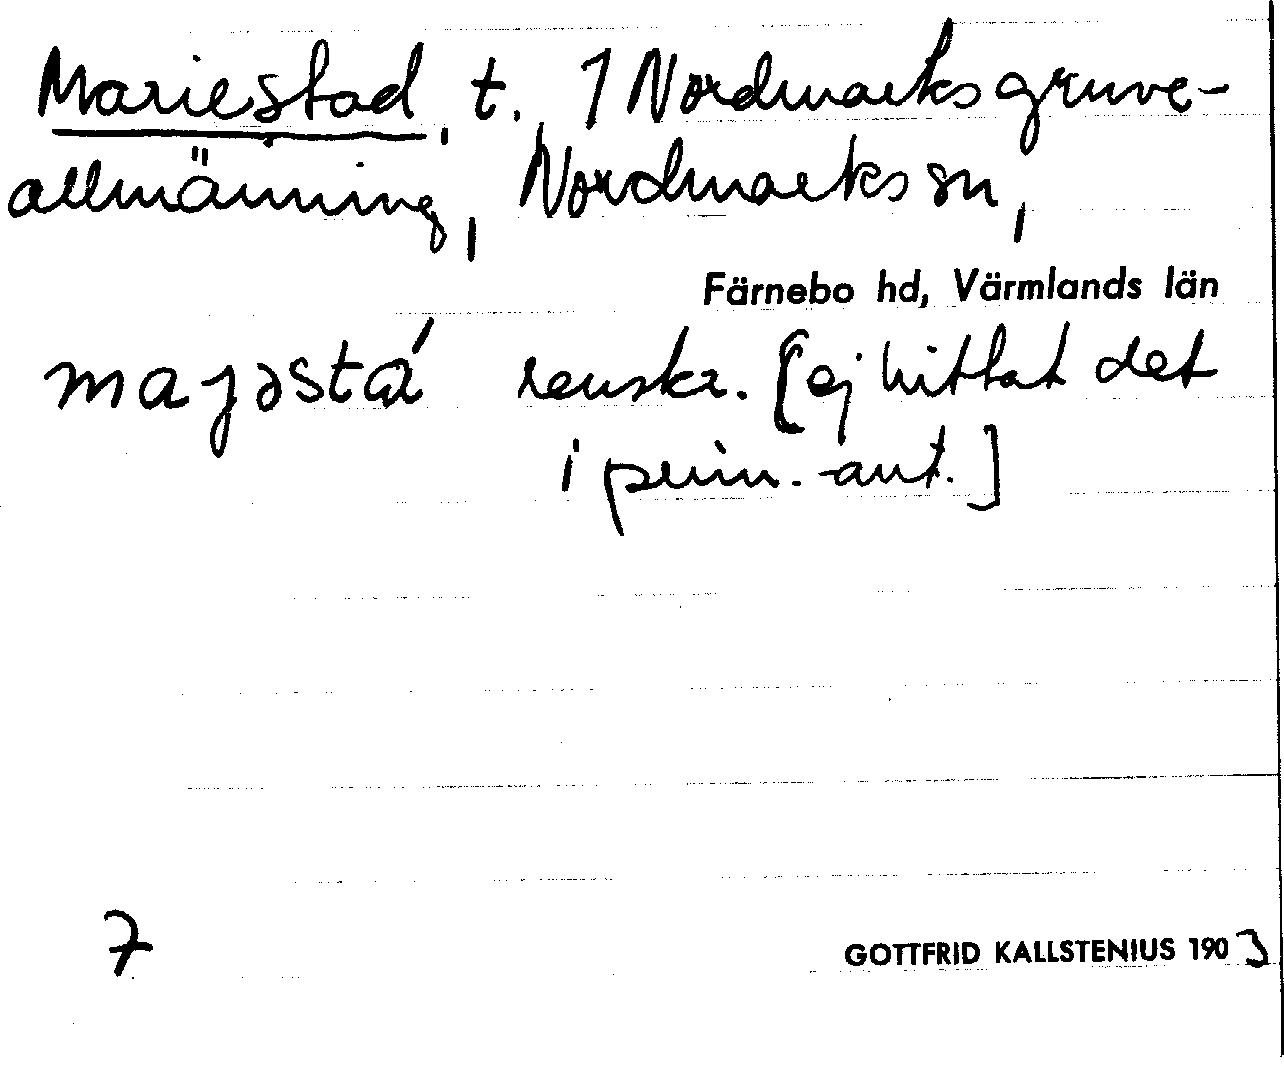 Mariestad, t. 1 Nordmarks gruve-
allmänning, Nordmarks sn,
Färnebo hd, Värmlands län
majəstá renskr. [ej hittat det
i prim.-ant.]
7
GOTTFRID KALLSTENIUS 1903